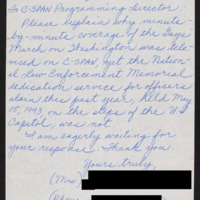 To C-SPAN Programming Director
Please explain why minute-
by-minute coverage of the Gays'
March on Washington was tele-
vised on C-SPAN, yet the Nation-
al Law Enforcement Memorial
dedication service for officers
slain this past year, held May
15, 1993, on the steps of the U.S.
Capitol, was not.
I am eagerly waiting for
your response. Thank you.
Yours truly,
(Mrs.)
(Phone